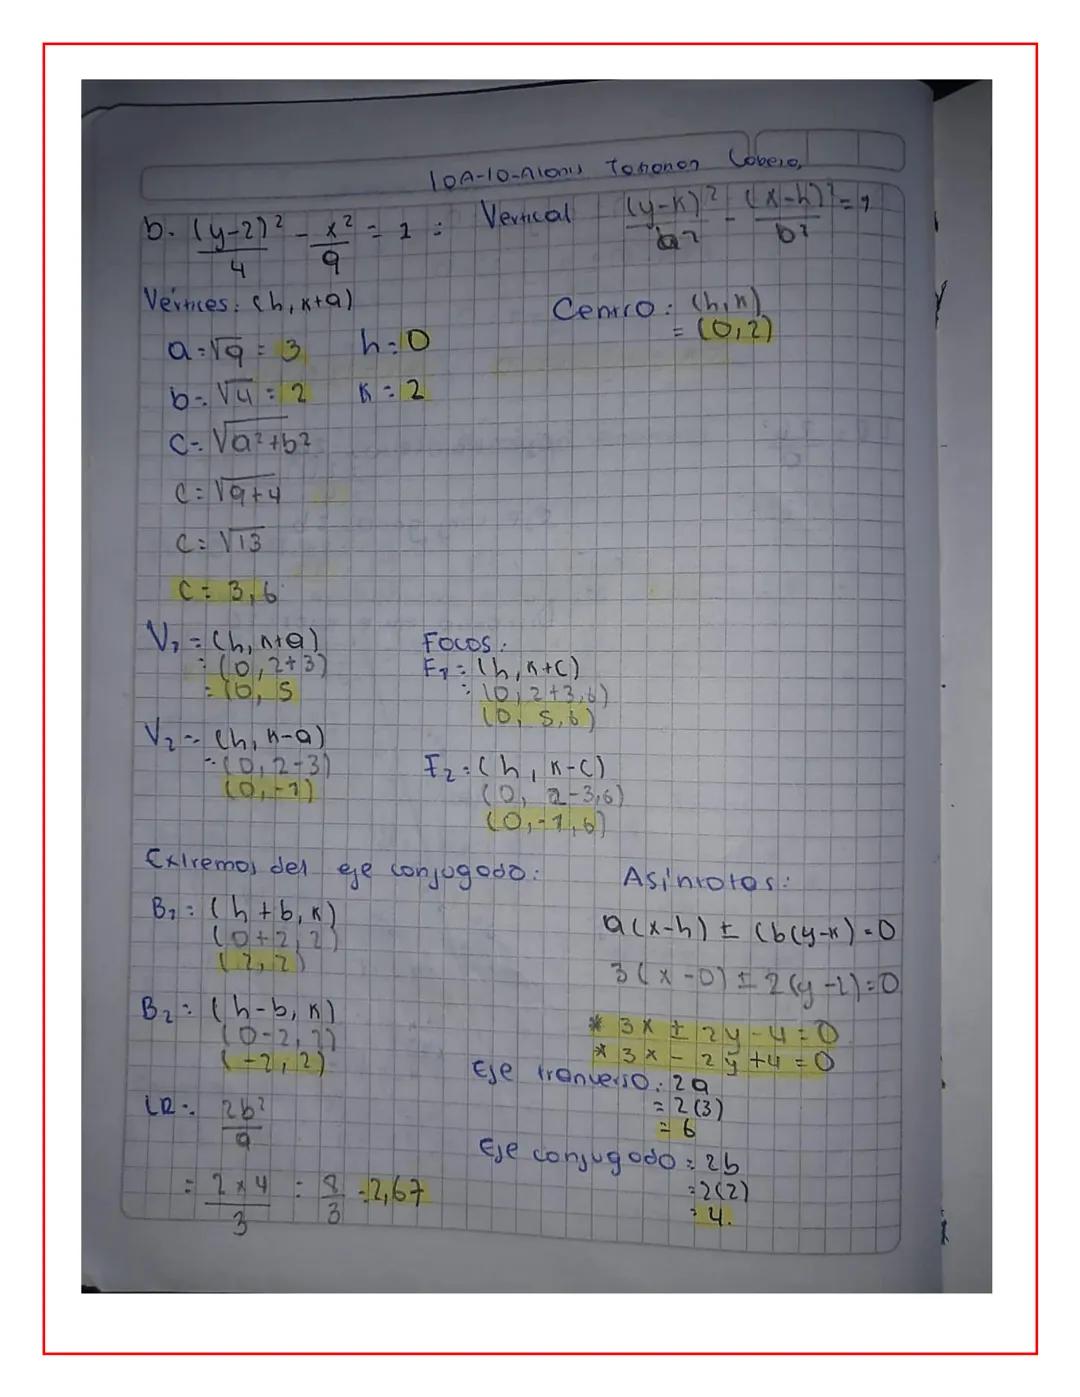 10A-10-Alanis Tohonon Cobero,
b. (y-2)²/4 - x²/9 = 1 : Vertical (y-k)²/a² - (x-h)²/b² = 1
Vértices: (h, k+a)
Centro: (h,k)
= (0,2)
a = √9 = 3 h = 0
b = √4 = 2 k = 2
C = √a²+b²
C = √9+4
C = √13
C = 3,6
V₁ = (h, k+a)
= (0, 2+3)
= (0, 5
Focos:
F₁ = (h, k+c)
= (0, 2+3,6)
(0, 5,6)
V₂ = (h, k-a)
= (0, 2-3)
(0, -1)
F₂ = (h, k-c)
(0, 2-3,6)
(0, -1,6)
Extremos del eje conjugado:
B₁ = (h+b, k)
(0+2, 2)
(2, 2)
B₂ = (h-b, k)
(0-2, 2)
(-2, 2)
LR = 2b²/a
= 2x4/3 = 8/3 = 2,67
Asíntotas:
a(x-h) ± (b(y-k) = 0
3(x-0) ± 2(y-2) = 0
* 3x ± 2y - 4 = 0
* 3x - 2y + 4 = 0
Eje tranverso: 2a
= 2(3)
= 6
Eje conjugado = 2b
= 2(2)
= 4.